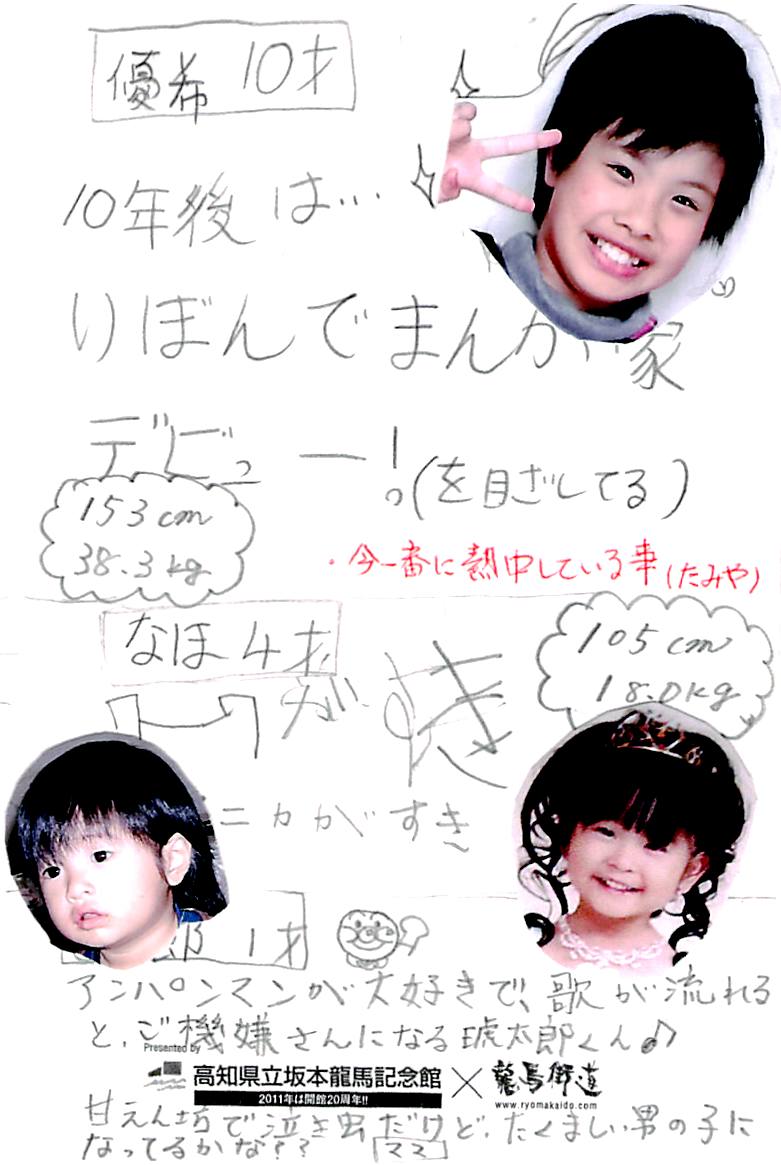 優希 10才
10年後は…
りぼんでまんが家
デビュー!(を目ざしてる)
153cm
38.3kg
・今一番に熱中している事(たみや)
なほ4才
105cm
18.0kg
がすき
ニカがすき
郎 1才
アンパンマンが大好きで、歌が流れる
と、ご機嫌さんになる琥太郎くん♪
Presented by
高知県立坂本龍馬記念館 × 龍馬街道
2011年は開館20周年!!
www.ryomakaido.com
甘えん坊で泣き虫だけど、たくましい男の子に
なってるかな?? ママ